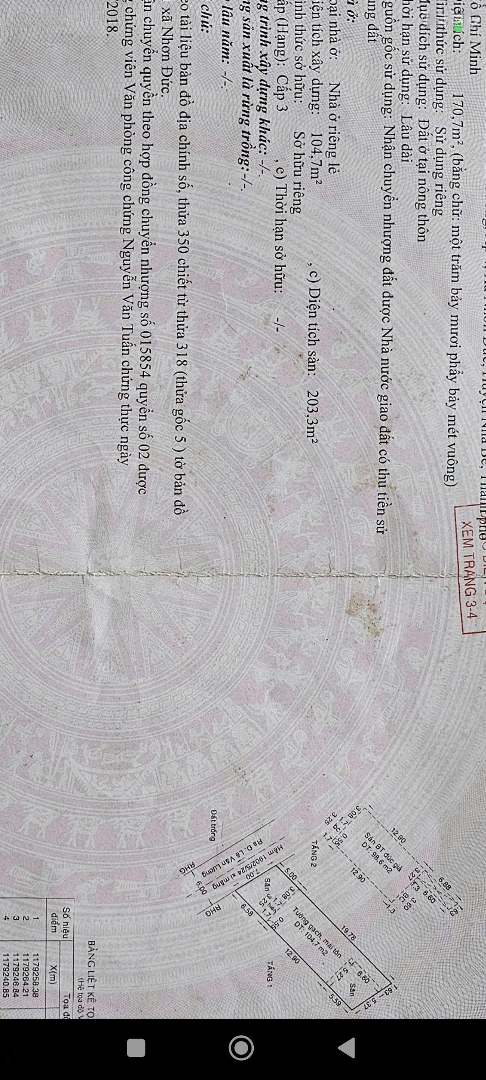 Hồ Chí Minh
170,7m², (bằng chữ: một trăm bảy mươi phẩy bảy mét vuông)
thức sử dụng: Sử dụng riêng
đích sử dụng: Đất ở tại nông thôn
hạn sử dụng: Lâu dài
gốc sử dụng: Nhận chuyển nhượng đất được Nhà nước giao đất có thu tiền sử
dụng đất
XEM TRANG 3-4
ở:
nhà ở: Nhà ở riêng lẻ
tích xây dựng: 104,7m² , c) Diện tích sàn: 203,3m²
thức sở hữu: Sở hữu riêng
(Hạng): Cấp 3 , e) Thời hạn sở hữu: -/-
trình xây dựng khác: -/-.
sản xuất là rừng trồng: -/-.
lâu năm: -/-.
chú:
tài liệu bản đồ địa chính số, thửa 350 chiết từ thửa 318 (thửa gốc 5 ) tờ bản đồ
xã Nhơn Đức.
chuyển quyền theo hợp đồng chuyển nhượng số 015854 quyển số 02 được
chứng viên Văn phòng công chứng Nguyễn Văn Tuấn chứng thực ngày
2018.
12.90
6.88
6.60
Sàn BT đúc giả
DT: 98,6 m2
12.90
TẦNG 2
Đất trống
Ra Đ. Lê Văn Lương
Hẻm 1602/5/24 xi măng
RHG
6.00
7.00
RHG
5.00
19.78
6.60
Sân
5.59
Tường gạch, mái tôn
DT: 104,7 m2
Sân
6.58
12.90
TẦNG 1
BẢNG LIỆT KÊ TỌ
(Hệ tọa độ V
Số hiệu
điểm
Tọa độ
X(m)
1 1179258.38
2 1179264.21
3 1179246.84
4 1179240.85